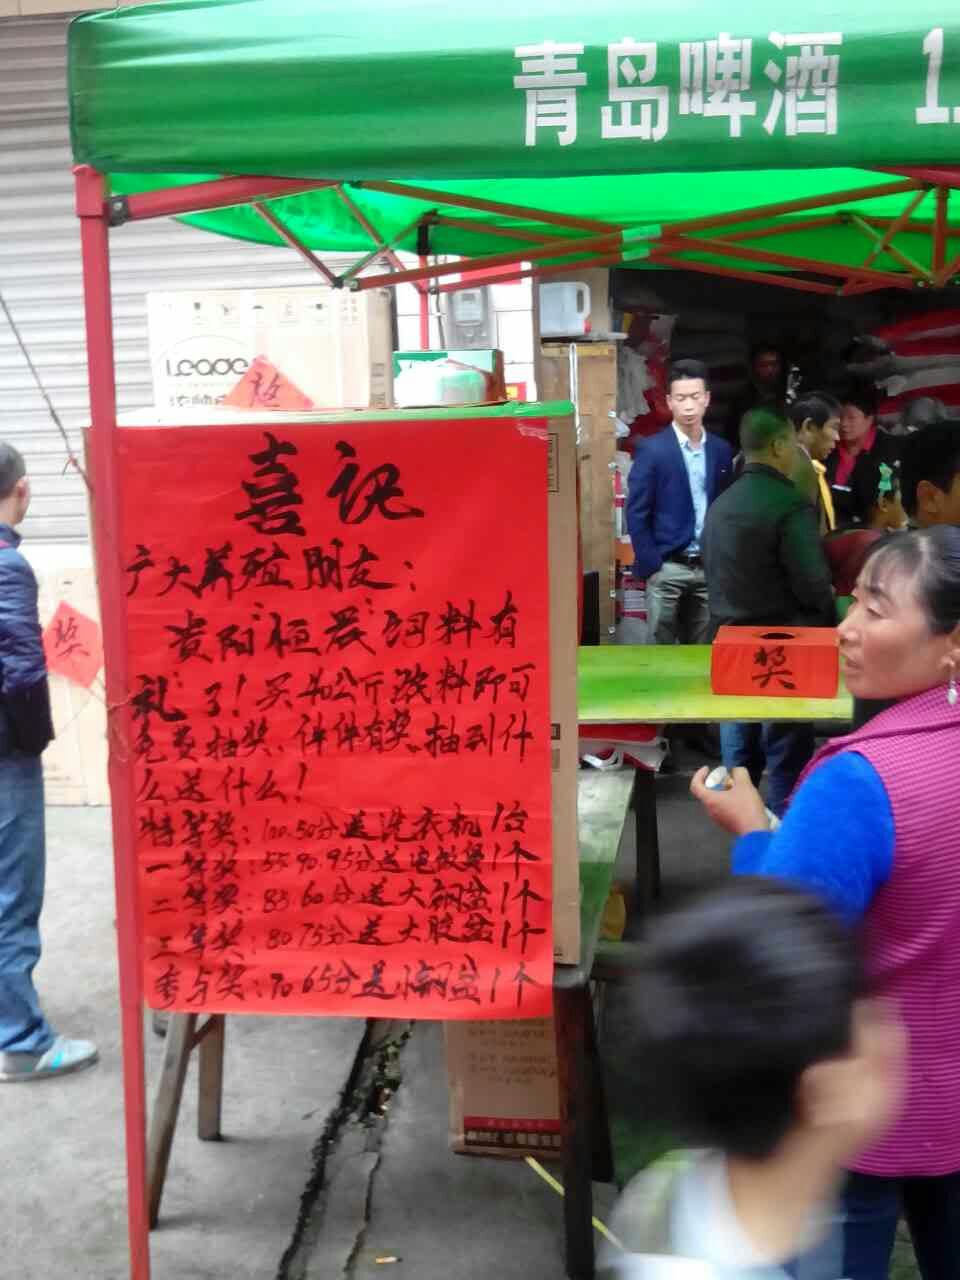 青岛啤酒 1
Leader
奖
喜讯
广大养殖朋友：
贵阳"恒农"饲料有
礼了！买40公斤浓料即可
免费抽奖、件件有奖、抽到什
么送什么！
特等奖：100.50分送洗衣机1台
一等奖：55 90.95分送电饭煲1个
二等奖：85.60分送大钢盆1个
三等奖：80 75分送大胶盆1个
参与奖：70 65分送小钢盆1个
奖
奖